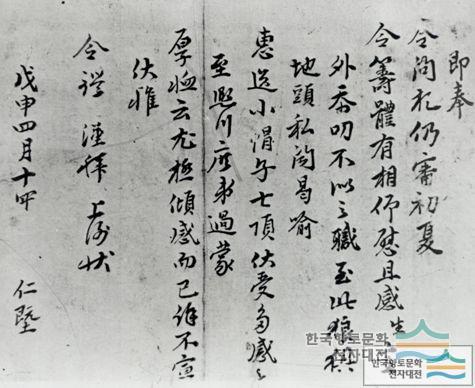 即奉
令問札仍審初夏
令籌體有相仰慰且感 生
外忝叨不似之職至此狼
地頭私悶曷喩
惠送小 七頂伏受多感々
至 川 過蒙
厚恤云尤極傾感而已餘不宣
伏惟
令 謹拜 上謝狀
戊申四月十 仁墍
한국향토문화
전자대전
한국향토문화
전자대전